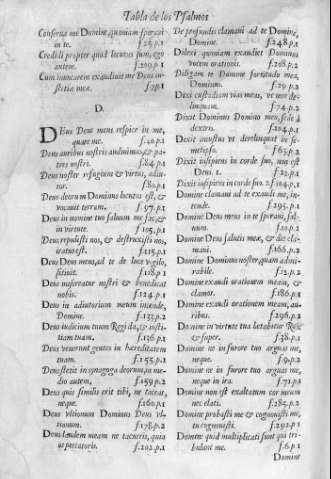 Tabla de los Psalmos
Conserua me Domine, quoniam speraui
in te. f.25.p.1
Credidi propter quod locutus sum, ego
autem. f.209.p.1
Cum inuocarem exaudiuit me Deus iu-
stitiæ meæ. f.7.p.1
D.
DEus Deus meus respice in me,
quare me. f.40.p.1
Deus auribus nostris audiuimus, & pa-
tres nostri. f.84.p.1
Deus noster refugium & virtus, adiu-
tor. f.80.p.1
Deus deorum Dominus locutus est, &
vocauit terram. f.97.p.1
Deus in nomine tuo saluum me fac, &
in virtute. f.105.p.1
Deus repulisti nos, & destruxisti nos,
iratus est. f.115.p.1
Deus Deus meus, ad te de luce vigilo,
sitiuit. f.118.p.1
Deus misereatur nostri & benedicat
nobis. f.124.p.1
Deus in adiutorium meum intende,
Domine. f.133.p.2
Deus iudicium tuum Regi da, & iusti-
tiam tuam. f.136.p.1
Deus venerunt gentes in hæreditatem
tuam. f.155.p.1
Deus stetit in synagoga deorum, in me-
dio autem. f.159.p.2
Deus quis similis erit tibi, ne taceas,
neque. f.160.p.1
Deus vltionum Dominus Deus vl-
tionum. f.178.p.2
Deus laudem meam ne tacueris, quia
os peccatoris. f.202.p.1
De profundis clamaui ad te Domine,
Domine. f.248.p.1
Dilexi quoniam exaudiet Dominus
vocem orationis. f.208.p.2
Diligam te Domine fortitudo mea,
Dominus. f.29.p.2
Dixi custodiam vias meas, vt non de-
linquam. f.74.p.2
Dixit Dominus Domino meo, sede à
dextris. f.204.p.1
Dixit iniustus vt derelinquat in se-
metipso. f.65.p.2
Dixit insipiens in corde suo, non est
Deus. 1. f.22.p.1
Dixit insipiens in corde suo. 2. f.104.p.1
Domine clamaui ad te exaudi me, in-
tende. f.295.p.1
Domine Deus meus in te speraui, sal-
uum. f.10.p.2
Domine Deus salutis meæ, & die cla-
maui. f.166.p.2
Domine Dominus noster, quam admi-
rabile. f.12.p.2
Domine exaudi orationem meam, &
clamor. f.186.p.1
Domine exaudi orationem meam, au-
ribus. f.296.p.2
Domine in virtute tua lætabitur Rex
& super. f.38.p.1
Domine ne in furore tuo arguas me,
neque. f.9.p.2
Domine ne in furore tuo arguas me,
neque in ira. f.71.p.1
Domine non est exaltatum cor meum
nec elati. f.285.p.2
Domine probasti me & cognouisti me,
tu cognouisti. f.292.p.1
Domine quid multiplicati sunt qui tri-
bulant me. f.6.p.1
Domine